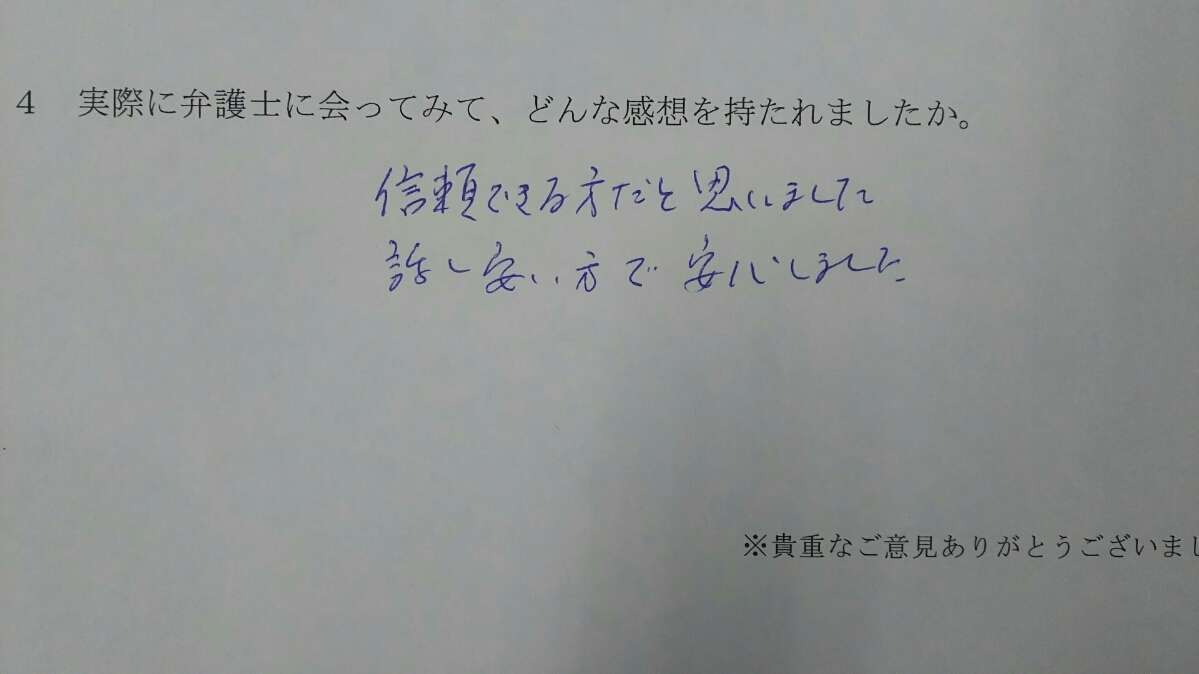 4 実際に弁護士に会ってみて、どんな感想を持たれましたか。
信頼できる方だと思いました
話し安い方で安心しました
※貴重なご意見ありがとうございまし